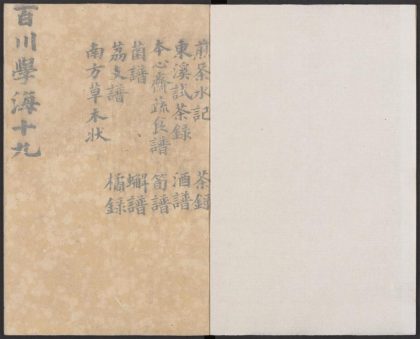 百川學海十九
煎茶水記 茶錄
東溪試茶錄 酒譜
本心齋蔬食譜 筍譜
菌譜 蟹譜
荔支譜 橘錄
南方草木狀